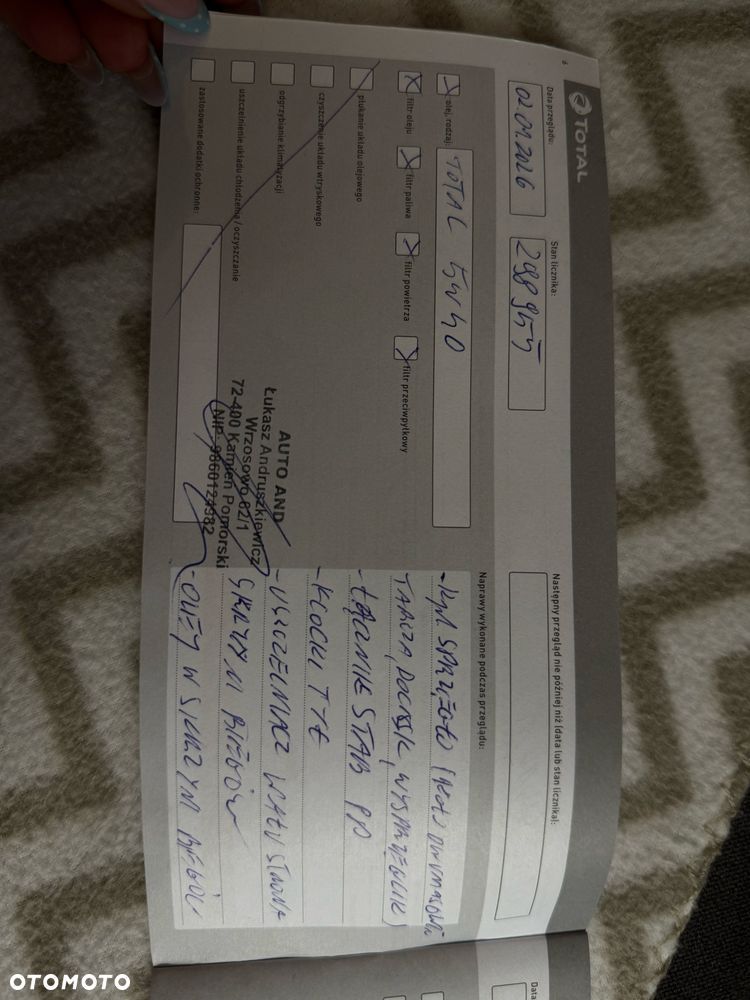 6
TOTAL
Data przeglądu:
02.01.2026
Stan licznika:
298955
Następny przegląd nie później niż (data lub stan licznika):
olej, rodzaj:
TOTAL 5W40
filtr oleju
filtr paliwa
filtr powietrza
filtr przeciwpyłkowy
płukanie układu olejowego
czyszczenie układu wtryskowego
odgrzybianie klimatyzacji
uszczelnienie układu chłodzenia / oczyszczanie
zastosowane dodatki ochronne:
AUTO AND
Łukasz Andruszkiewicz
Wrzosowo 62/1
72-400 Kamień Pomorski
NIP: 9860124382
Naprawy wykonane podczas przeglądu:
-KPL SPRZĘGŁO (KOŁO DWUMASOWE
TARCZA, DOCISK, WYSPRZĘGLIK)
-ŁĄCZNIK STAB PP
-KLOCKI TYŁ
-USZCZELNIACZ WAŁU STRONA
SKRZYNI BIEGÓW
-OLEJ W SKRZYNI BIEGÓW
Data
OTOMOTO